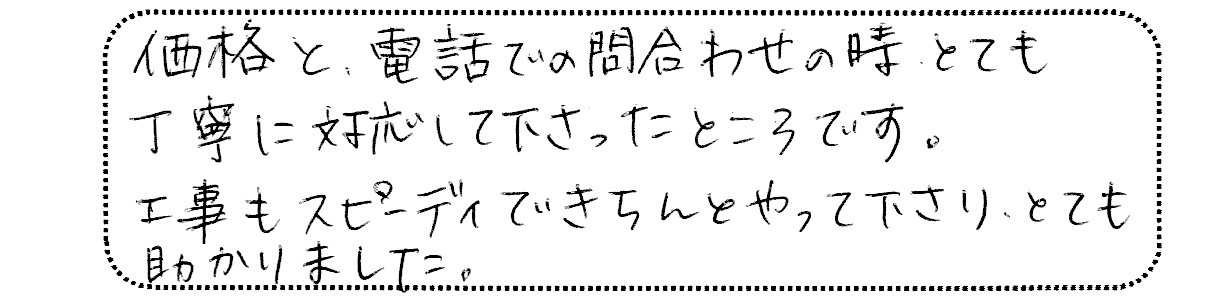 価格と、電話での問合わせの時、とても
丁寧に対応して下さったところです。
工事もスピーディできちんとやって下さり、とても
助かりました。